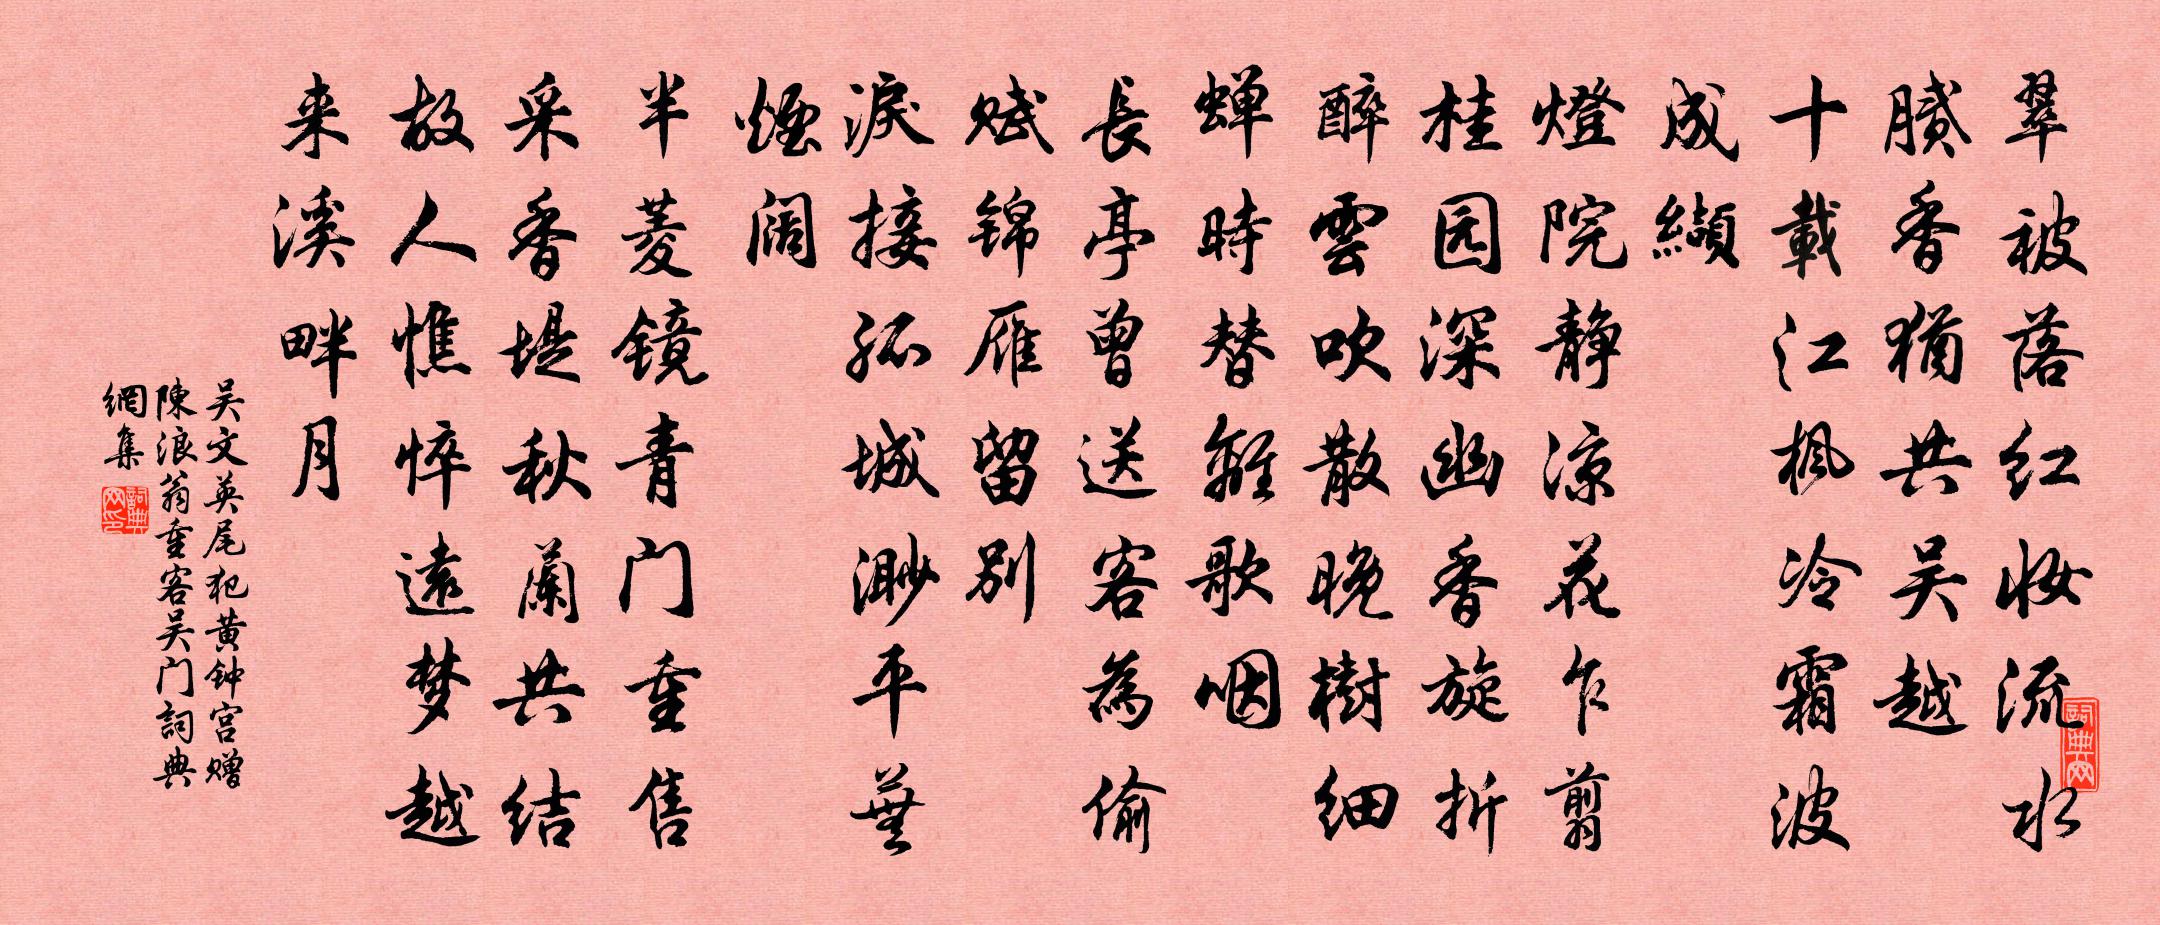 翠被落红妆流水
腻香犹共吴越
十載江枫冷霜波
成纈
燈院静凉花乍剪
桂园深幽香旋折
醉雲吹散晚樹细
蝉時替離歌咽
長亭曾送客為偷
赋锦雁留别
淚接孤城渺平蕪
煙阔
半菱镜青门重售
采香堤秋蘭共结
故人憔悴遠梦越
来溪畔月
吴文英尾犯黄钟宫赠
陳浪翁重客吴门詞典
網集
詞典网印
詞典网